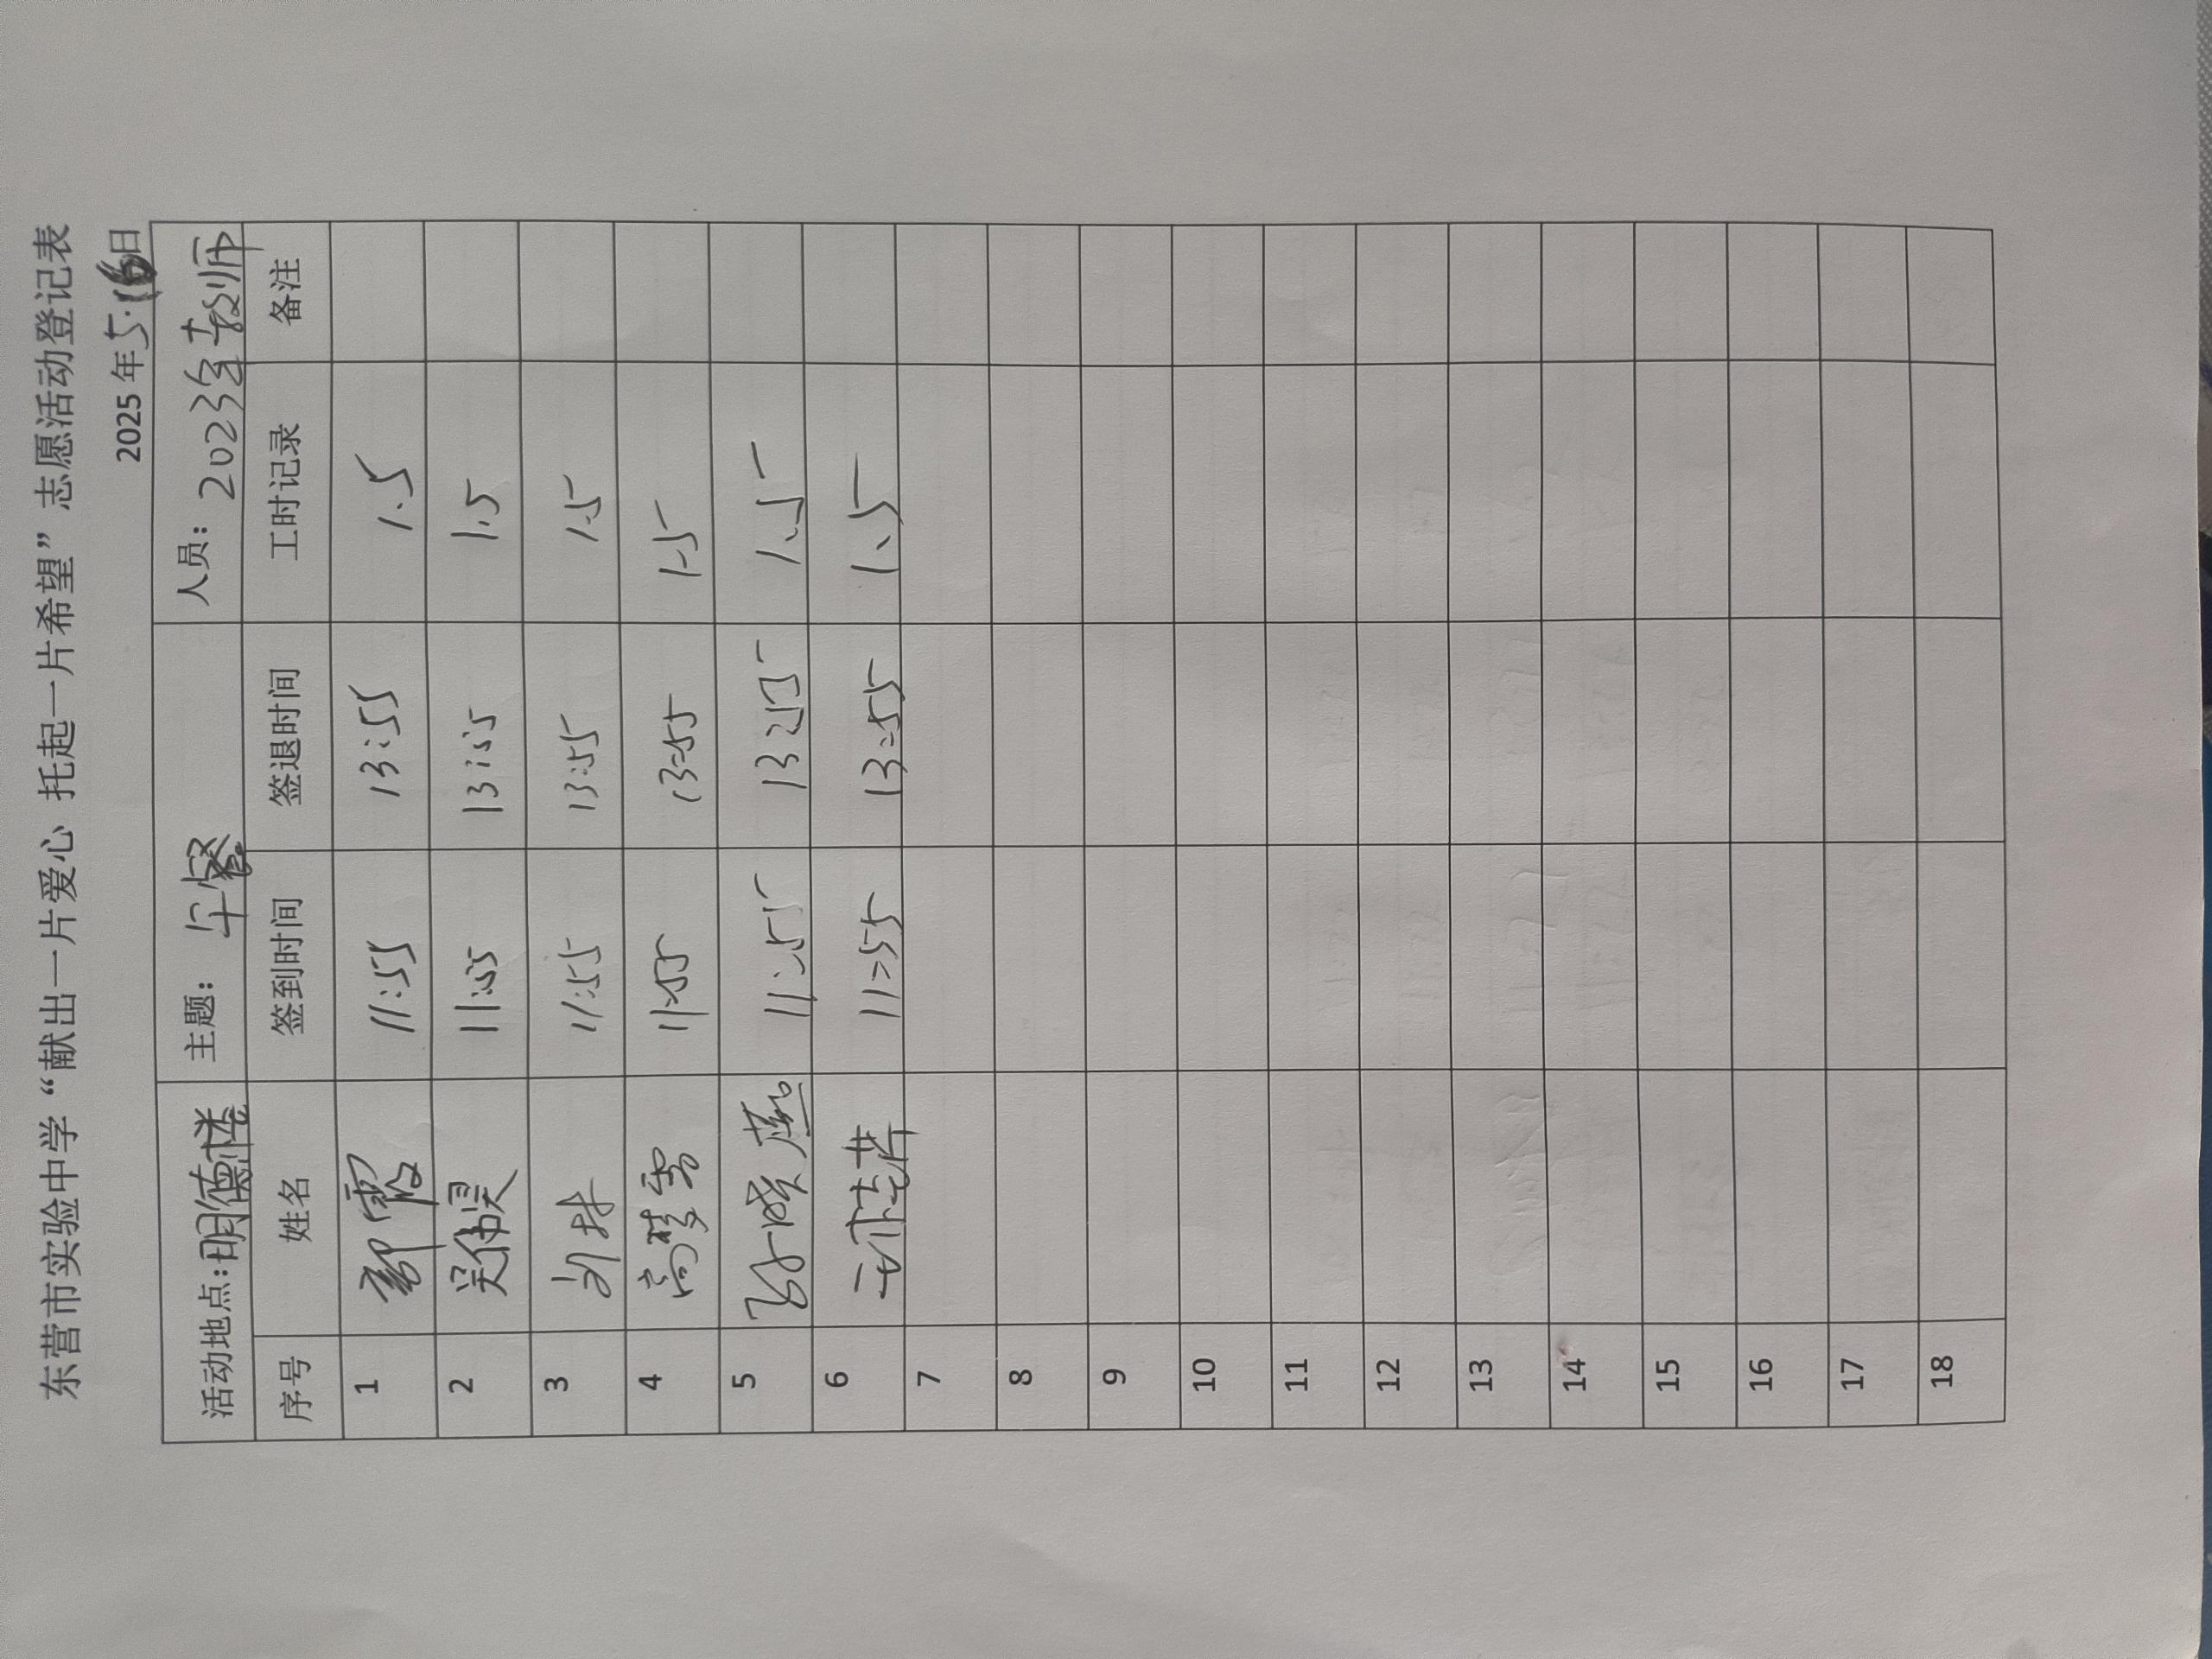 东营市实验中学“献出一片爱心 托起一片希望”志愿活动登记表
2025年5.16日
活动地点:明德楼 主题:午餐 人员:2023级教师
序号 姓名 签到时间 签退时间 工时记录 备注
1 郭霞 11:55 13:55 1.5
2 吴伟昊 11:55 13:55 1.5
3 11:55 13:55 1.5
4 高梦雪 11:55 13:55 1.5
5 11:55 13:55 1.5
6 11:55 13:55 1.5
7
8
9
10
11
12
13
14
15
16
17
18